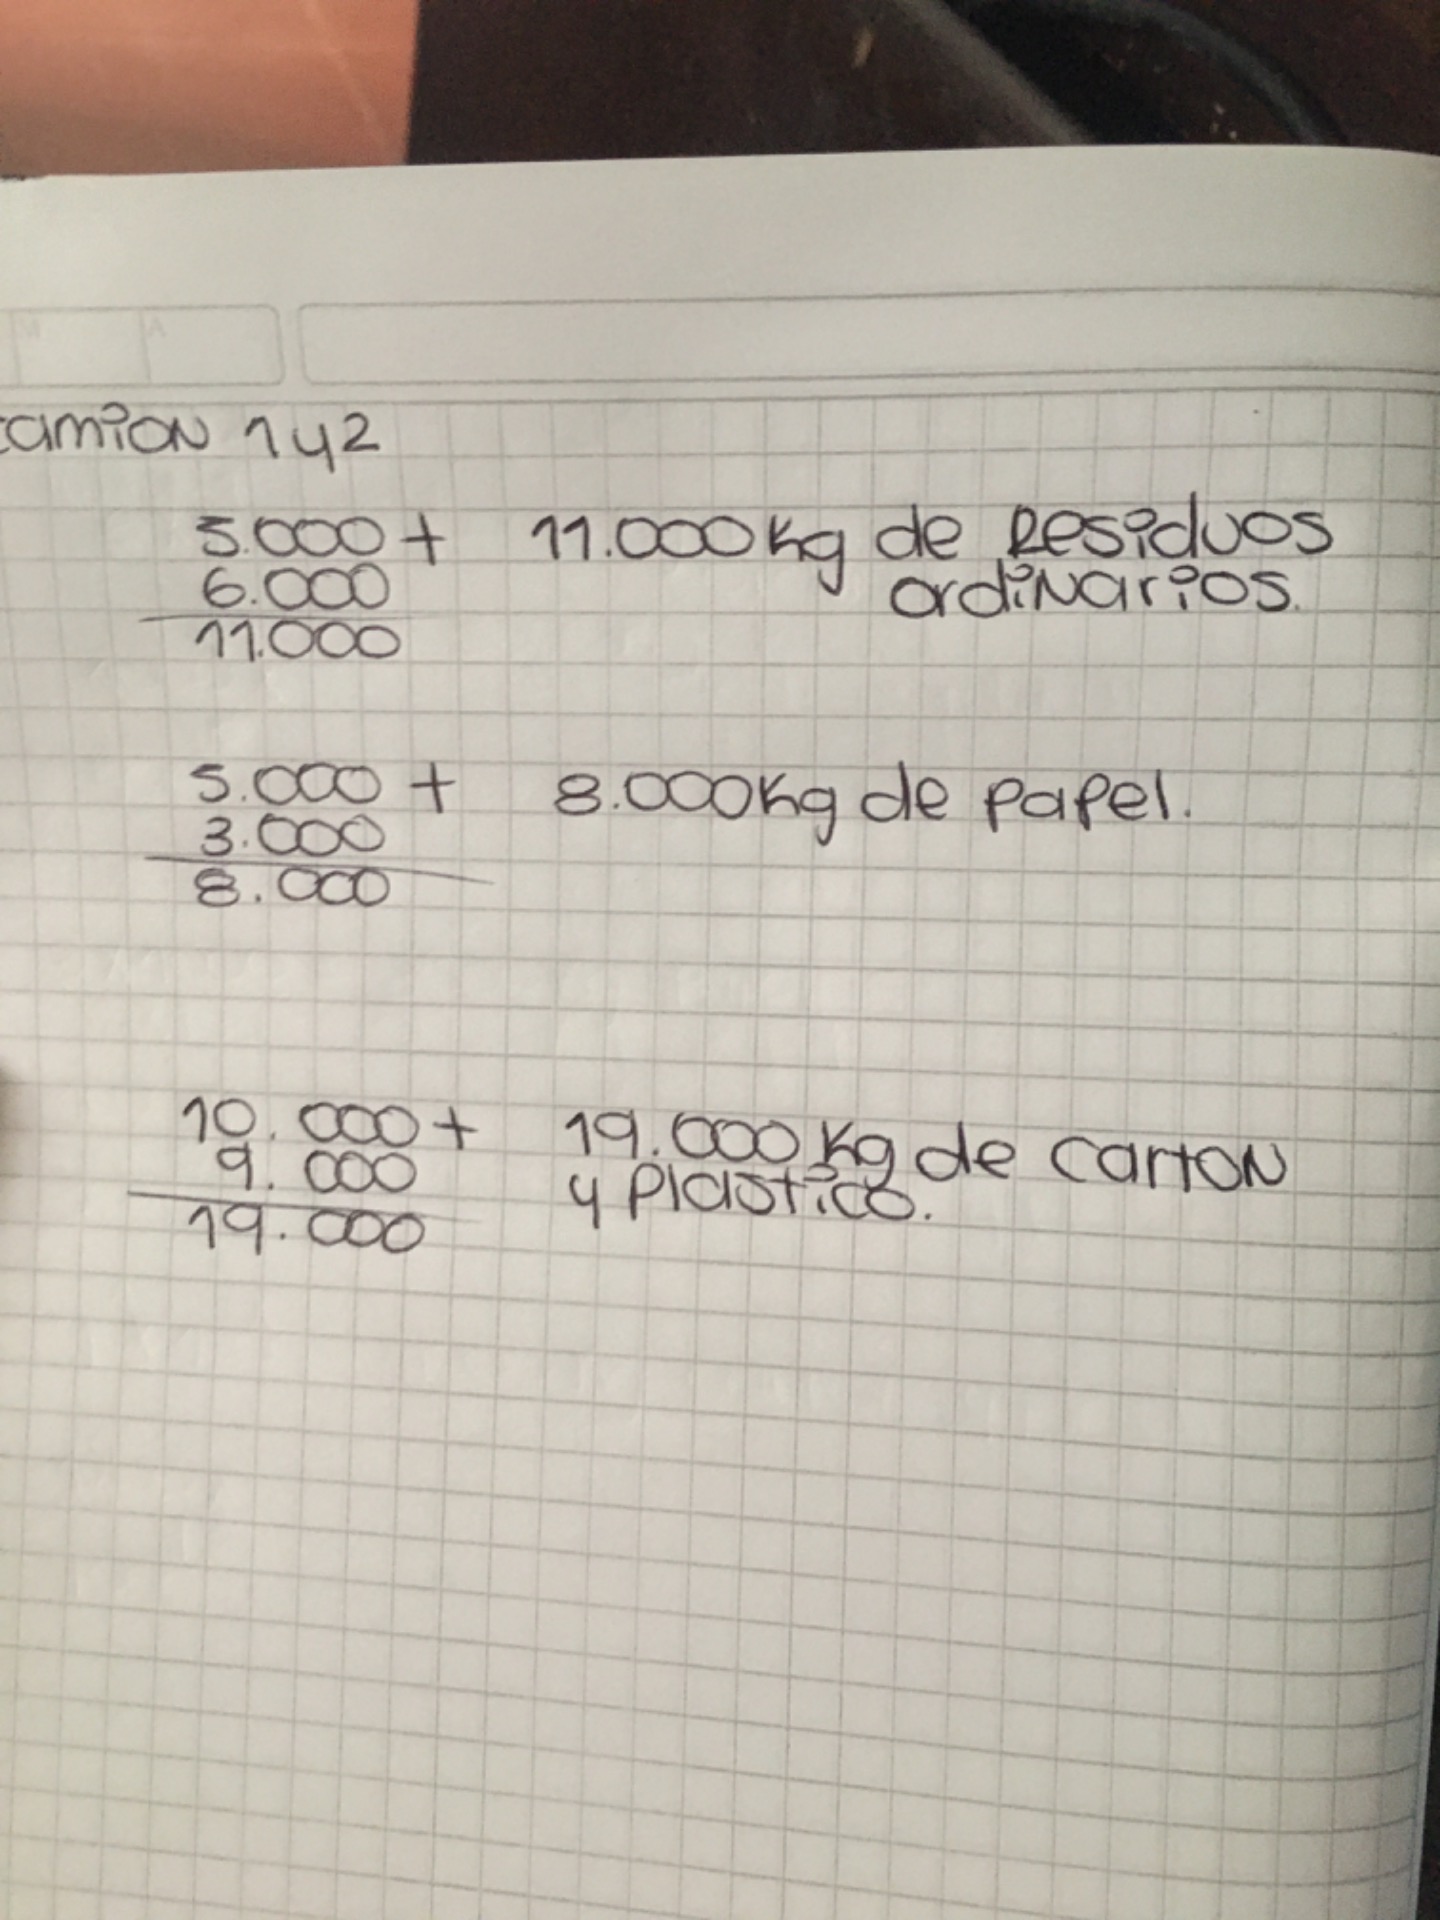 camion 1 y 2
5.000 + 11.000 kg de Residuos
6.000 ordinarios.
11.000
5.000 + 8.000 kg de papel.
3.000
8.000
10.000 + 19.000 kg de carton
9.000 y Plastico.
19.000